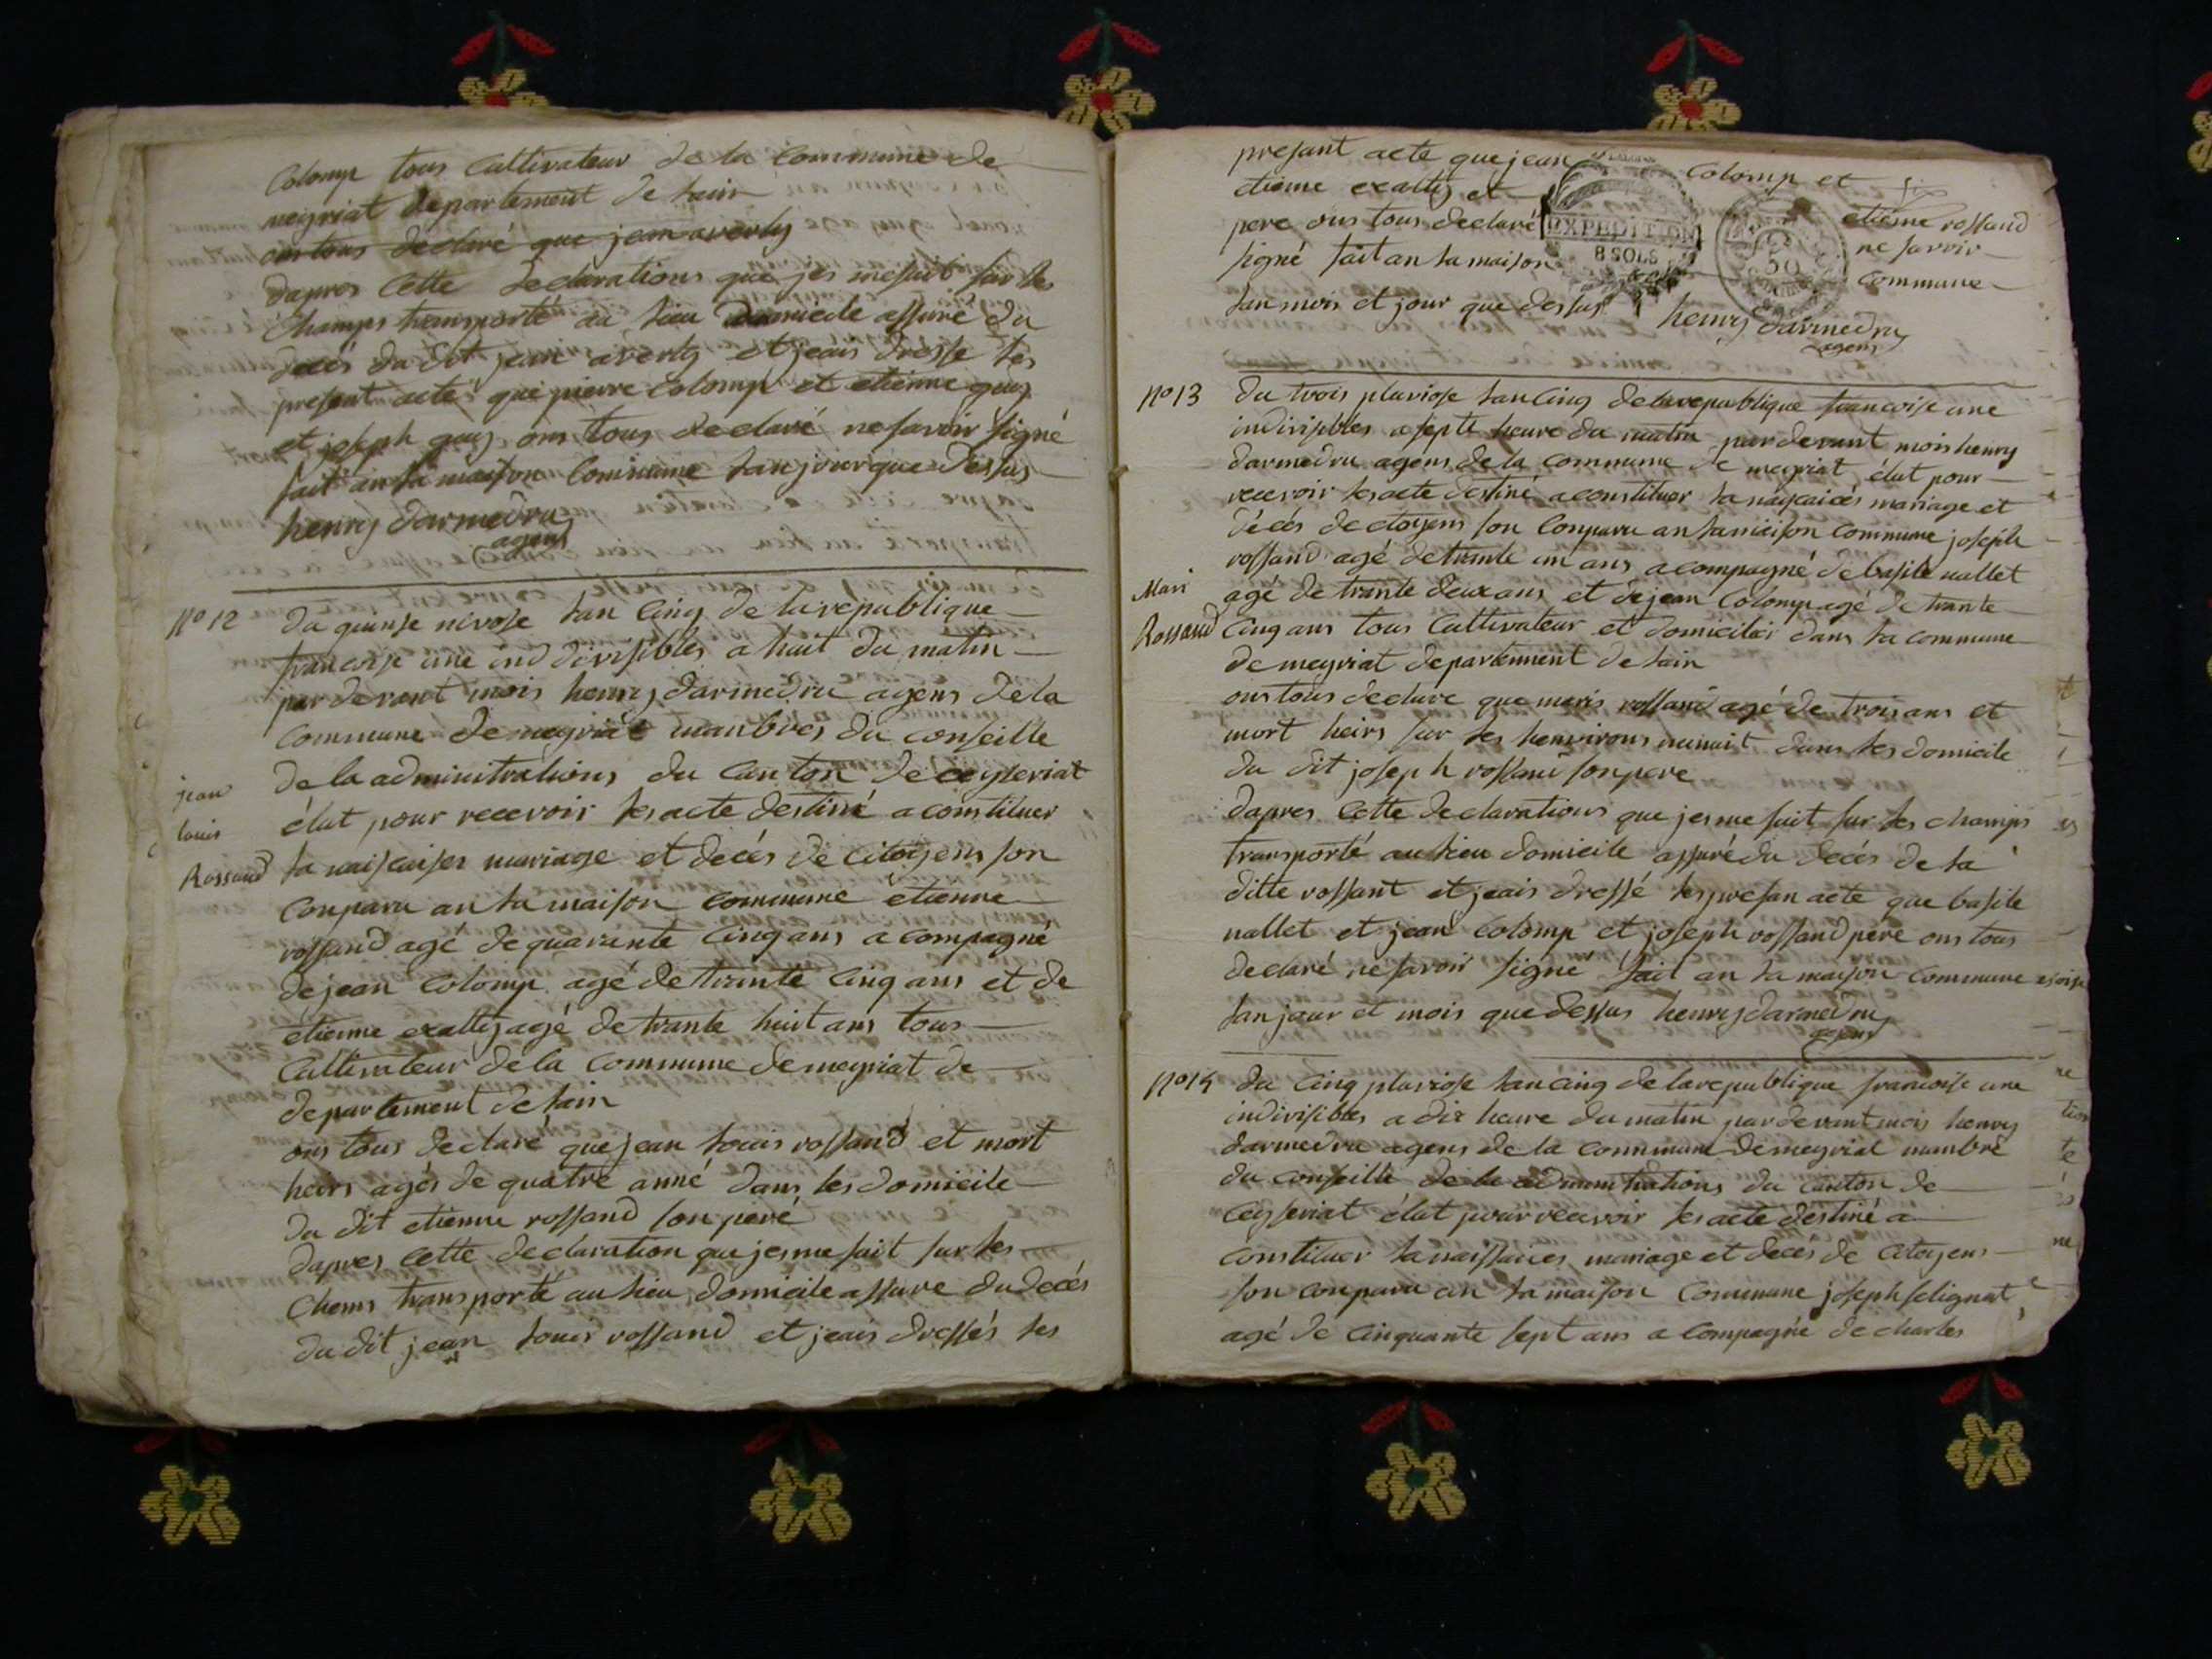 Colomp tous Cultivateur de la Commune de
meyriat departement de lain
ons tous declaré que jean averly
dapres Cette declarations que jes me suit sur les
Champs transporté au lieu domicile assuré du
decés du dit jean averly et jeais dresse les
presant acte que pierre Colomp et etienne guy
et joseph guy ons tous declaré ne savoir signé
fait an la maison Commune lan jour que dessus
henry darmedru
agens
No 12
du quinse nivose lan Cinq de la republique
francoise une ind divisibles a huit du matin
par devant mois henry darmedru agens de la
Commune de meyriat manbres du conseille
de la adminitrations du Canton de ceyseriat
jean
louis
Rossand
élut pour recevoir les acte destiné a constituer
la naiscaises mariage et decés de Citoyens son
Conparu an la maison commune etienne
rossand agé de quarante Cinq ans a compagné
de jean Colomp agé de trante Cinq ans et de
etienne exattey agé de trante huit ans tous
Cultivateur de la Commune de meyriat de
departement de lain
ons tous declaré que jean louis rossand et mort
heirs agés de quatre anné dans les domicile
du dit etienne rossand son peré
dapres Cette declaration que jes me suit sur les
Chams transporté au lieu domicile assure du decés
du dit jean louis rossand et jeais dressés les
presant acte que jean Colomp et
etienne exattey et etiéne rossand
pere ons tous declaré ne savoir
signé fait an la maison Commune
lan mois et jour que dessus henry darmedru
agens
EXPEDITION
8 SOLS
50
No 13
du trois pluviose lan Cinq de la republique francoise une
indivisibles a septe heure du matin par devant mois henry
darmedru agens de la commune de meyriat élut pour
recevoir les acte destiné a constituer la naiscaicés mariage et
décés de citoyens son Conparu an la maison commune joseph
rossand agé de trante un ans acompagné de basile nallet
Mari
Rossand
agé de trante deux ans et de jean Colomp agé de trante
Cinq ans tous Cultivateur et domicilié dans la commune
de meyriat departement de lain
ons tous declare que maris rossand agé de trois ans et
mort heirs sur les henvirons minuit dans les domicile
du dit joseph rossand son pere
dapres Cette declarations que jes me suit sur les champs
transporté au lieu domicile assuré du decés de la
ditte rossant et jeais dressé les presan acte que basile
nallet et jean Colomp et joseph rossand pere ons tous
declaré ne savoir signé fait an la maison Commune
lan jour et mois que dessus henry darmedru
agens
No 14
du Cinq pluviose lan cinq de la republique francoise une
indivisibles a dix heure du matin par devant mois henry
darmedru agens de la commune de meyriat manbre
du conseille de la adminitrations du canton de
Ceyseriat élut pour recevoir les acte destiné a
Constituer la naissaices mariage et decés de Citoyens
son conparu an la maison Commune joseph selignat
agé de Cinquante sept ans a Compagné de charles